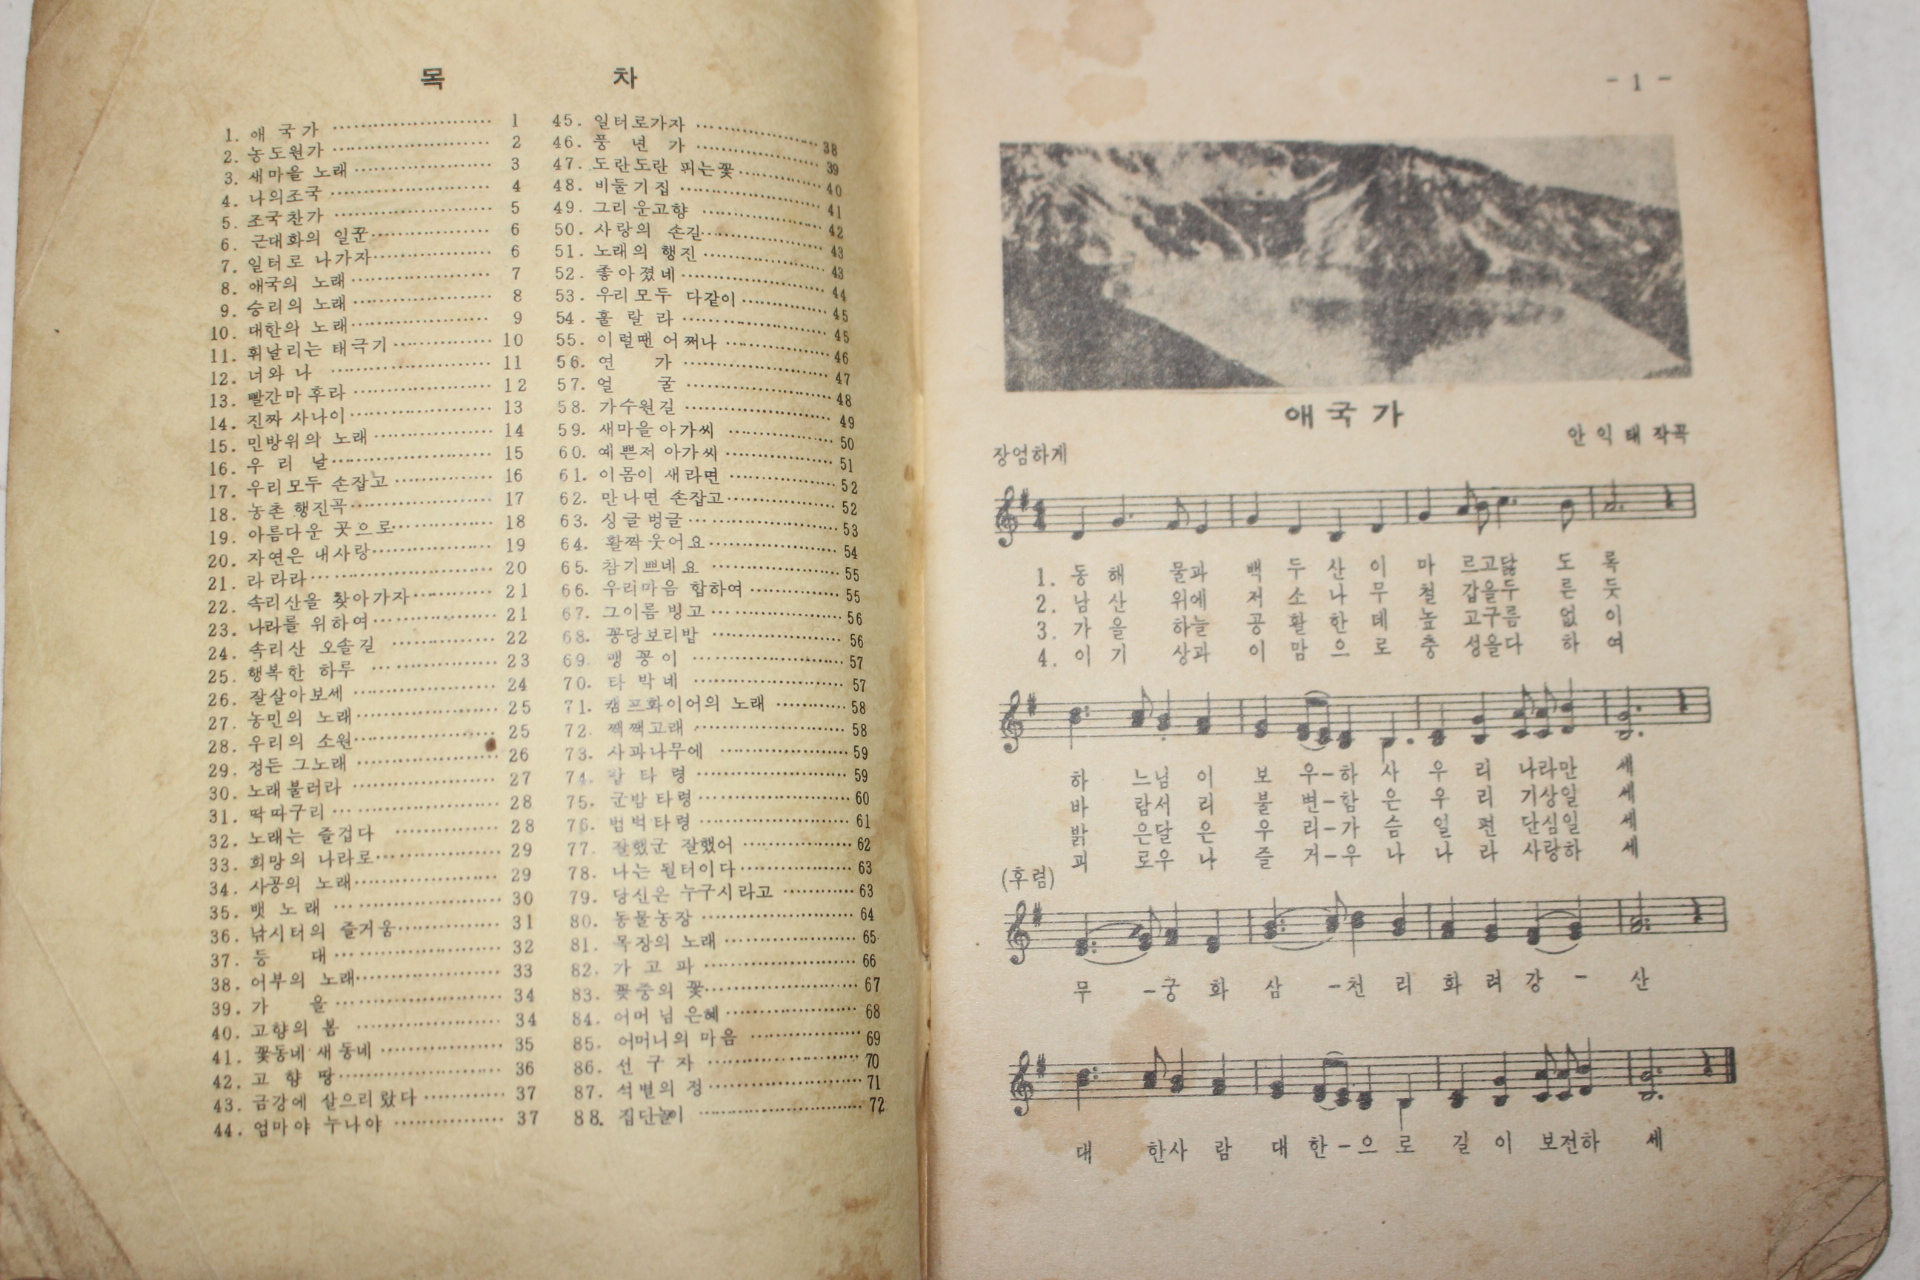 목 차
1. 애 국 가 1
2. 농도원가 2
3. 새마을 노래 3
4. 나의조국 4
5. 조국찬가 5
6. 근대화의 일꾼 6
7. 일터로 나가자 6
8. 애국의 노래 7
9. 승리의 노래 8
10. 대한의 노래 9
11. 휘날리는 태극기 10
12. 너와 나 11
13. 빨간마후라 12
14. 진짜 사나이 13
15. 민방위의 노래 14
16. 우 리 날 15
17. 우리모두 손잡고 16
18. 농촌 행진곡 17
19. 아름다운 곳으로 18
20. 자연은 내사랑 19
21. 라라라 20
22. 속리산을 찾아가자 21
23. 나라를 위하여 21
24. 속리산 오솔길 22
25. 행복한 하루 23
26. 잘살아보세 24
27. 농민의 노래 25
28. 우리의 소원 25
29. 정든 그노래 26
30. 노래불러라 27
31. 딱따구리 28
32. 노래는 즐겁다 28
33. 희망의 나라로 29
34. 사공의 노래 29
35. 뱃 노래 30
36. 낚시터의 즐거움 31
37. 등 대 32
38. 어부의 노래 33
39. 가 을 34
40. 고향의 봄 34
41. 꽃동네 새동네 35
42. 고 향 땅 36
43. 금강에 살으리랐다 37
44. 엄마야 누나야 37
45. 일터로가자 38
46. 풍 년 가 39
47. 도란도란 피는꽃 40
48. 비둘기집 41
49. 그리운고향 42
50. 사랑의 손길 43
51. 노래의 행진 43
52. 좋아졌네 44
53. 우리모두 다같이 45
54. 훌 랄 라 45
55. 이럴땐 어쩌나 46
56. 연 가 47
57. 얼 굴 48
58. 가수원길 49
59. 새마을 아가씨 50
60. 예쁜저 아가씨 51
61. 이몸이 새라면 52
62. 만나면 손잡고 52
63. 싱글벙글 53
64. 활짝웃어요 54
65. 참기쁘네요 55
66. 우리마음 합하여 55
67. 그이름 빙고 56
68. 꽁당보리밥 56
69. 맹꽁이 57
70. 타박네 57
71. 캠프화이어의 노래 58
72. 쩩쩩고래 58
73. 사과나무에 59
74. 타 령 59
75. 군밤타령 60
76. 범벅타령 61
77. 잘했군 잘했어 62
78. 나는 이다 63
79. 당신은 누구시라고 63
80. 동물농장 64
81. 목장의 노래 65
82. 가 고 파 66
83. 꽃중의 꽃 67
84. 어머님 은혜 68
85. 어머니의 마음 69
86. 선 구 자 70
87. 석별의 정 71
88. 집단놀이 72
- 1 -
애국가
안익태 작곡
장엄하게
1. 동 해 물과 백 두 산 이 마 르고닳 도 록
2. 남 산 위에 저 소 나 무 철 갑을두 른 듯
3. 가 을 하늘 공 활 한 데 높 고구름 없 이
4. 이 기 상과 이 맘 으 로 충 성을다 하 여
하 느님 이 보 우-하 사 우 리 나라만 세
바 람서 리 불 변-함 은 우 리 기상일 세
밝 은달 은 우 리-가 슴 일 편 단심일 세
괴 로우 나 즐 거-우 나 나 라 사랑하 세
(후렴)
무 -궁 화 삼 -천 리 화 려 강 - 산
대 한사 람 대 한-으 로 길 이 보전하 세